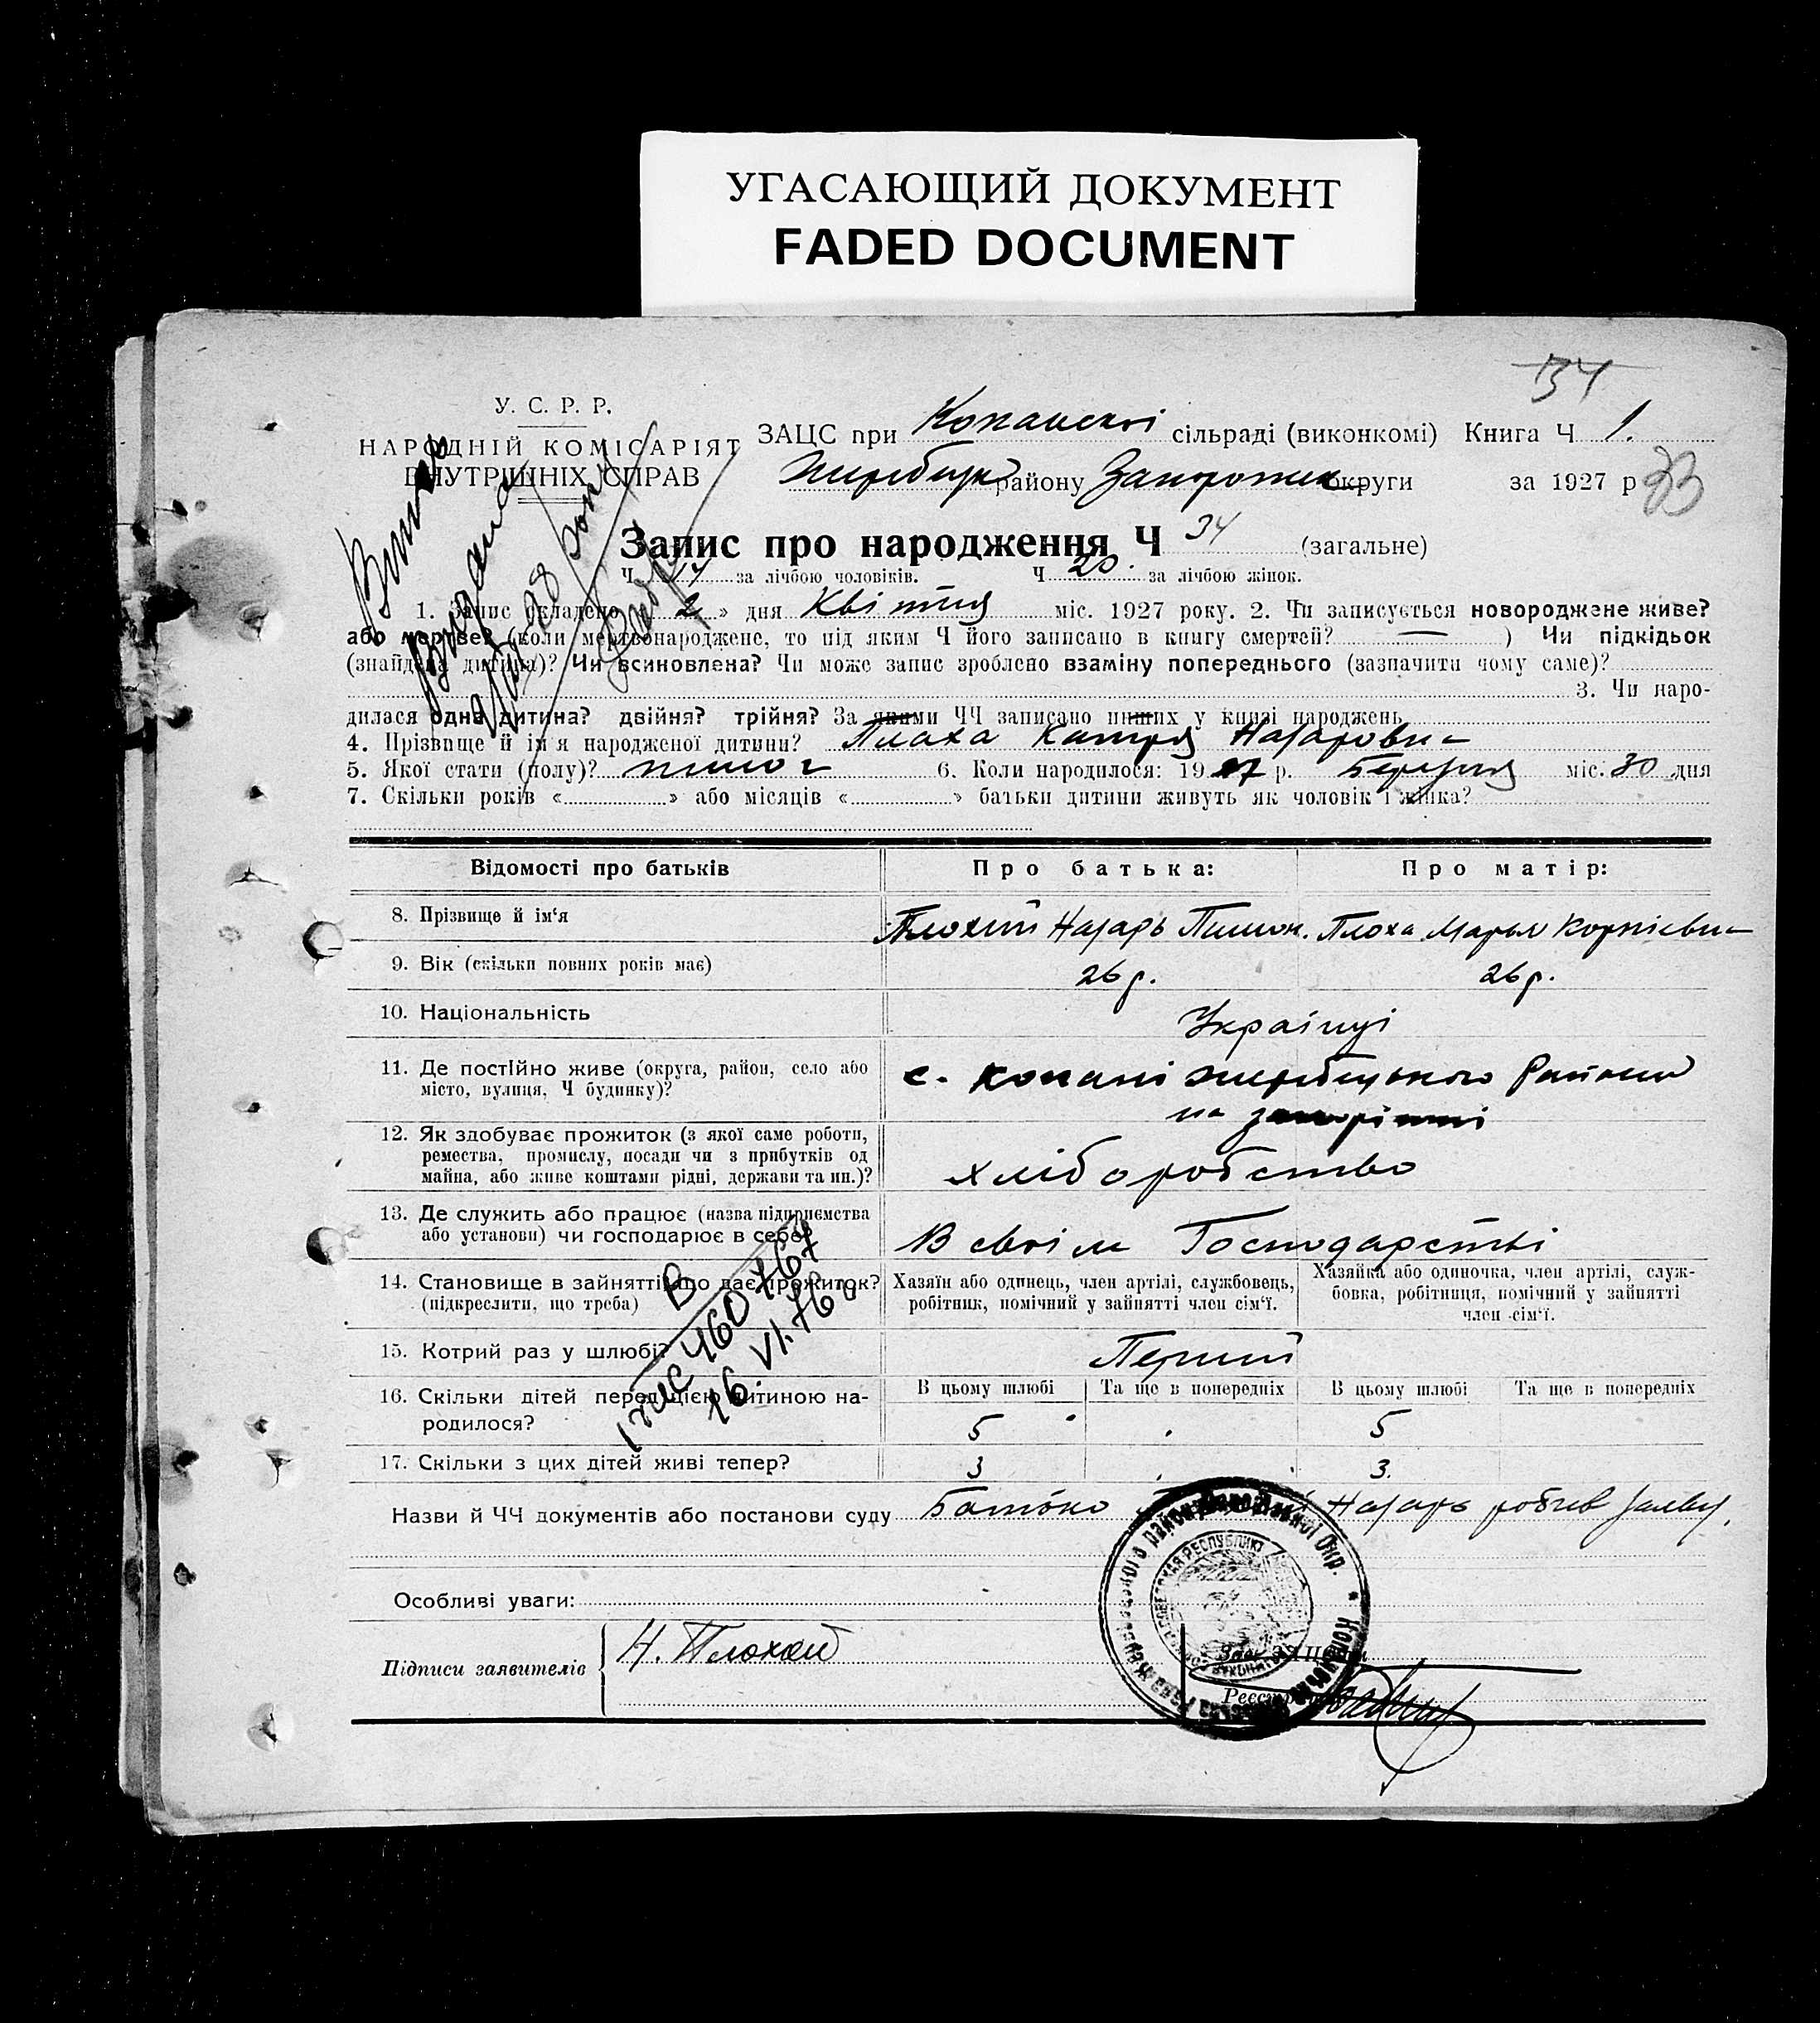 УГАСАЮЩИЙ ДОКУМЕНТ
FADED DOCUMENT
34
У. С. Р. Р.
НАРОДНІЙ КОМІСАРІЯТ
ВНУТРІШНІХ СПРАВ
ЗАЦС при Копанскоі сільраді (виконкомі) Книга Ч 1.
району округи за 1927 р
33
Запис про народження Ч 34 (загальне)
Ч за лічбою чоловіків. Ч 20. за лічбою жінок.
1. Запис складено 2 » дня Квітня міс. 1927 року. 2. Чи записується новороджене живе?
або мертве? (коли мертвонароджене, то під яким Ч його записано в книгу смертей? — ) Чи підкідьок
(знайдена дитина)? Чи всиновлена? Чи може запис зроблено взаміну попереднього (зазначити чому саме)?
3. Чи наро-
дилася одна дитина? двійня? трійня? За якими ЧЧ записано инших у книзі народжень
4. Прізвище й ім'я народженої дитини? Плоха Катря Назаровн-
5. Якої стати (полу)? жіноч 6. Коли народилося: 1927 р. Березня міс. 30 дня
7. Скільки років «» або місяців «» батьки дитини живуть як чоловік і жінка?
Відомості про батьків Про батька: Про матір:
8. Прізвище й ім'я Плохий Назарь Пимон. Плоха Марья Корніевн-
9. Вік (скільки повних років має) 26 р. 26 р.
10. Національність Українці
11. Де постійно живе (округа, район, село або
місто, вулиця, Ч будинку)?
с. Копані жеребецького Району
на
12. Як здобуває прожиток (з якої саме роботи,
ремества, промислу, посади чи з прибутків од
майна, або живе коштами рідні, держави та ин.)?
хліборобство
13. Де служить або працює (назва підприємства
або установи) чи господарює в себе?
В своім Господарстві
14. Становище в зайнятті, що дає прожиток?
(підкреслити, що треба)
Хазяїн або одинець, член артілі, службовець,
робітник, помічний у зайнятті член сім'ї.
Хазяйка або одиночка, член артілі, служ-
бовка, робітниця, помічний у зайнятті
член сім'ї.
15. Котрий раз у шлюбі? Перший
16. Скільки дітей перед цією дитиною на-
родилося?
В цьому шлюбі Та ще в попередніх В цьому шлюбі Та ще в попередніх
5 5
17. Скільки з цих дітей живі тепер? 3 3.
Назви й ЧЧ документів або постанови суду Батько Назарь робив заяву.
Особливі уваги:
Підписи заявителів Н. Плохой
Зав. ЗАЦСом
Реєстратор